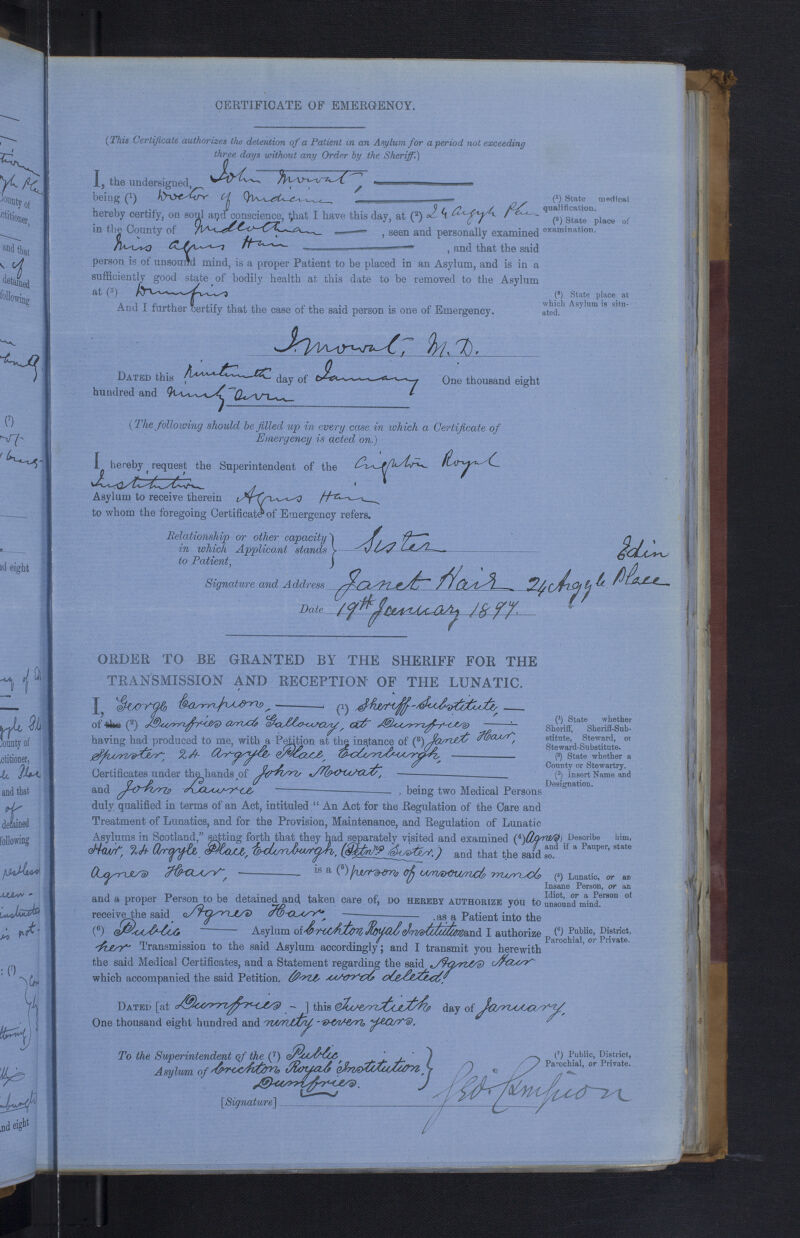 CERTIFICATE OF EMERGENCY.
(This Certificate authorizes the detention of a Patient in an Asylum for a period not exceeding
three days without any Order by the Sheriff.)
I, the undersigned, John Mowat,
being (1) Doctor of Medicine
hereby certify, on soul and conscience, that I have this day, at (2) 24 Argyle Place
in the County of Midlothian , seen and personally examined
Miss Agnes Hair , and that the said
person is of unsound mind, is a proper Patient to be placed in an Asylum, and is in a
sufficiently good state of bodily health at this date to be removed to the Asylum
at (3) Dumfries
And I further certify that the case of the said person is one of Emergency.
(1) State medical
qualification.
(2) State place of
examination.
(3) State place at
which Asylum is situ-
ated.
J. Mowat, M.D.
DATED this Nineteenth day of January One thousand eight
hundred and Ninety Seven
(The following should be filled up in every case in which a Certificate of
Emergency is acted on.)
I hereby request the Superintendent of the Crighton Royal
Institution
Asylum to receive therein Agnes Hair
to whom the foregoing Certificate of Emergency refers.
Relationship or other capacity
in which Applicant stands
to Patient,
Sister
Signature and Address Janet Hair 24 Argyle Place
Edin
Date 19th January 1897
ORDER TO BE GRANTED BY THE SHERIFF FOR THE
TRANSMISSION AND RECEPTION OF THE LUNATIC.
I, George Campion, (1) Sheriff-Substitute,
of the (2) Dumfries and Galloway, at Dumfries
having had produced to me, with a Petition at the instance of (3) Janet Hair,
Spinster, 24 Argyle Place, Edinburgh,
Certificates under the hands of John Mowat,
and John Lawrie , being two Medical Persons
duly qualified in terms of an Act, intituled “ An Act for the Regulation of the Care and
Treatment of Lunatics, and for the Provision, Maintenance, and Regulation of Lunatic
Asylums in Scotland,” setting forth that they had separately visited and examined (4) Agnes
Hair, 24 Argyle Place, Edinburgh, (Petnrs Sister,) and that the said
Agnes Hair, is a (5) person of unsound mind
and a proper Person to be detained and taken care of, DO HEREBY AUTHORIZE you to
receive the said Agnes Hair, as a Patient into the
(6) Public Asylum of Crichton Royal Institution and I authorize
her Transmission to the said Asylum accordingly; and I transmit you herewith
the said Medical Certificates, and a Statement regarding the said Agnes Hair
which accompanied the said Petition. One word deleted.
(1) State whether
Sheriff, Sheriff-Sub-
stitute, Steward, or
Steward-Substitute.
(2) State whether a
County or Stewartry.
(3) insert Name and
Designation.
(4) Describe him,
and if a Pauper, state
so.
(5) Lunatic, or an
Insane Person, or an
Idiot, or a Person of
unsound mind.
(6) Public, District,
Parochial, or Private.
DATED [at Dumfries - ] this Twentieth day of January,
One thousand eight hundred and ninety-seven years.
To the Superintendent of the (7) Public
Asylum of Crichton Royal Institution,
Dumfries.
(7) Public, District,
Parochial, or Private.
[Signature] Geo: Campion